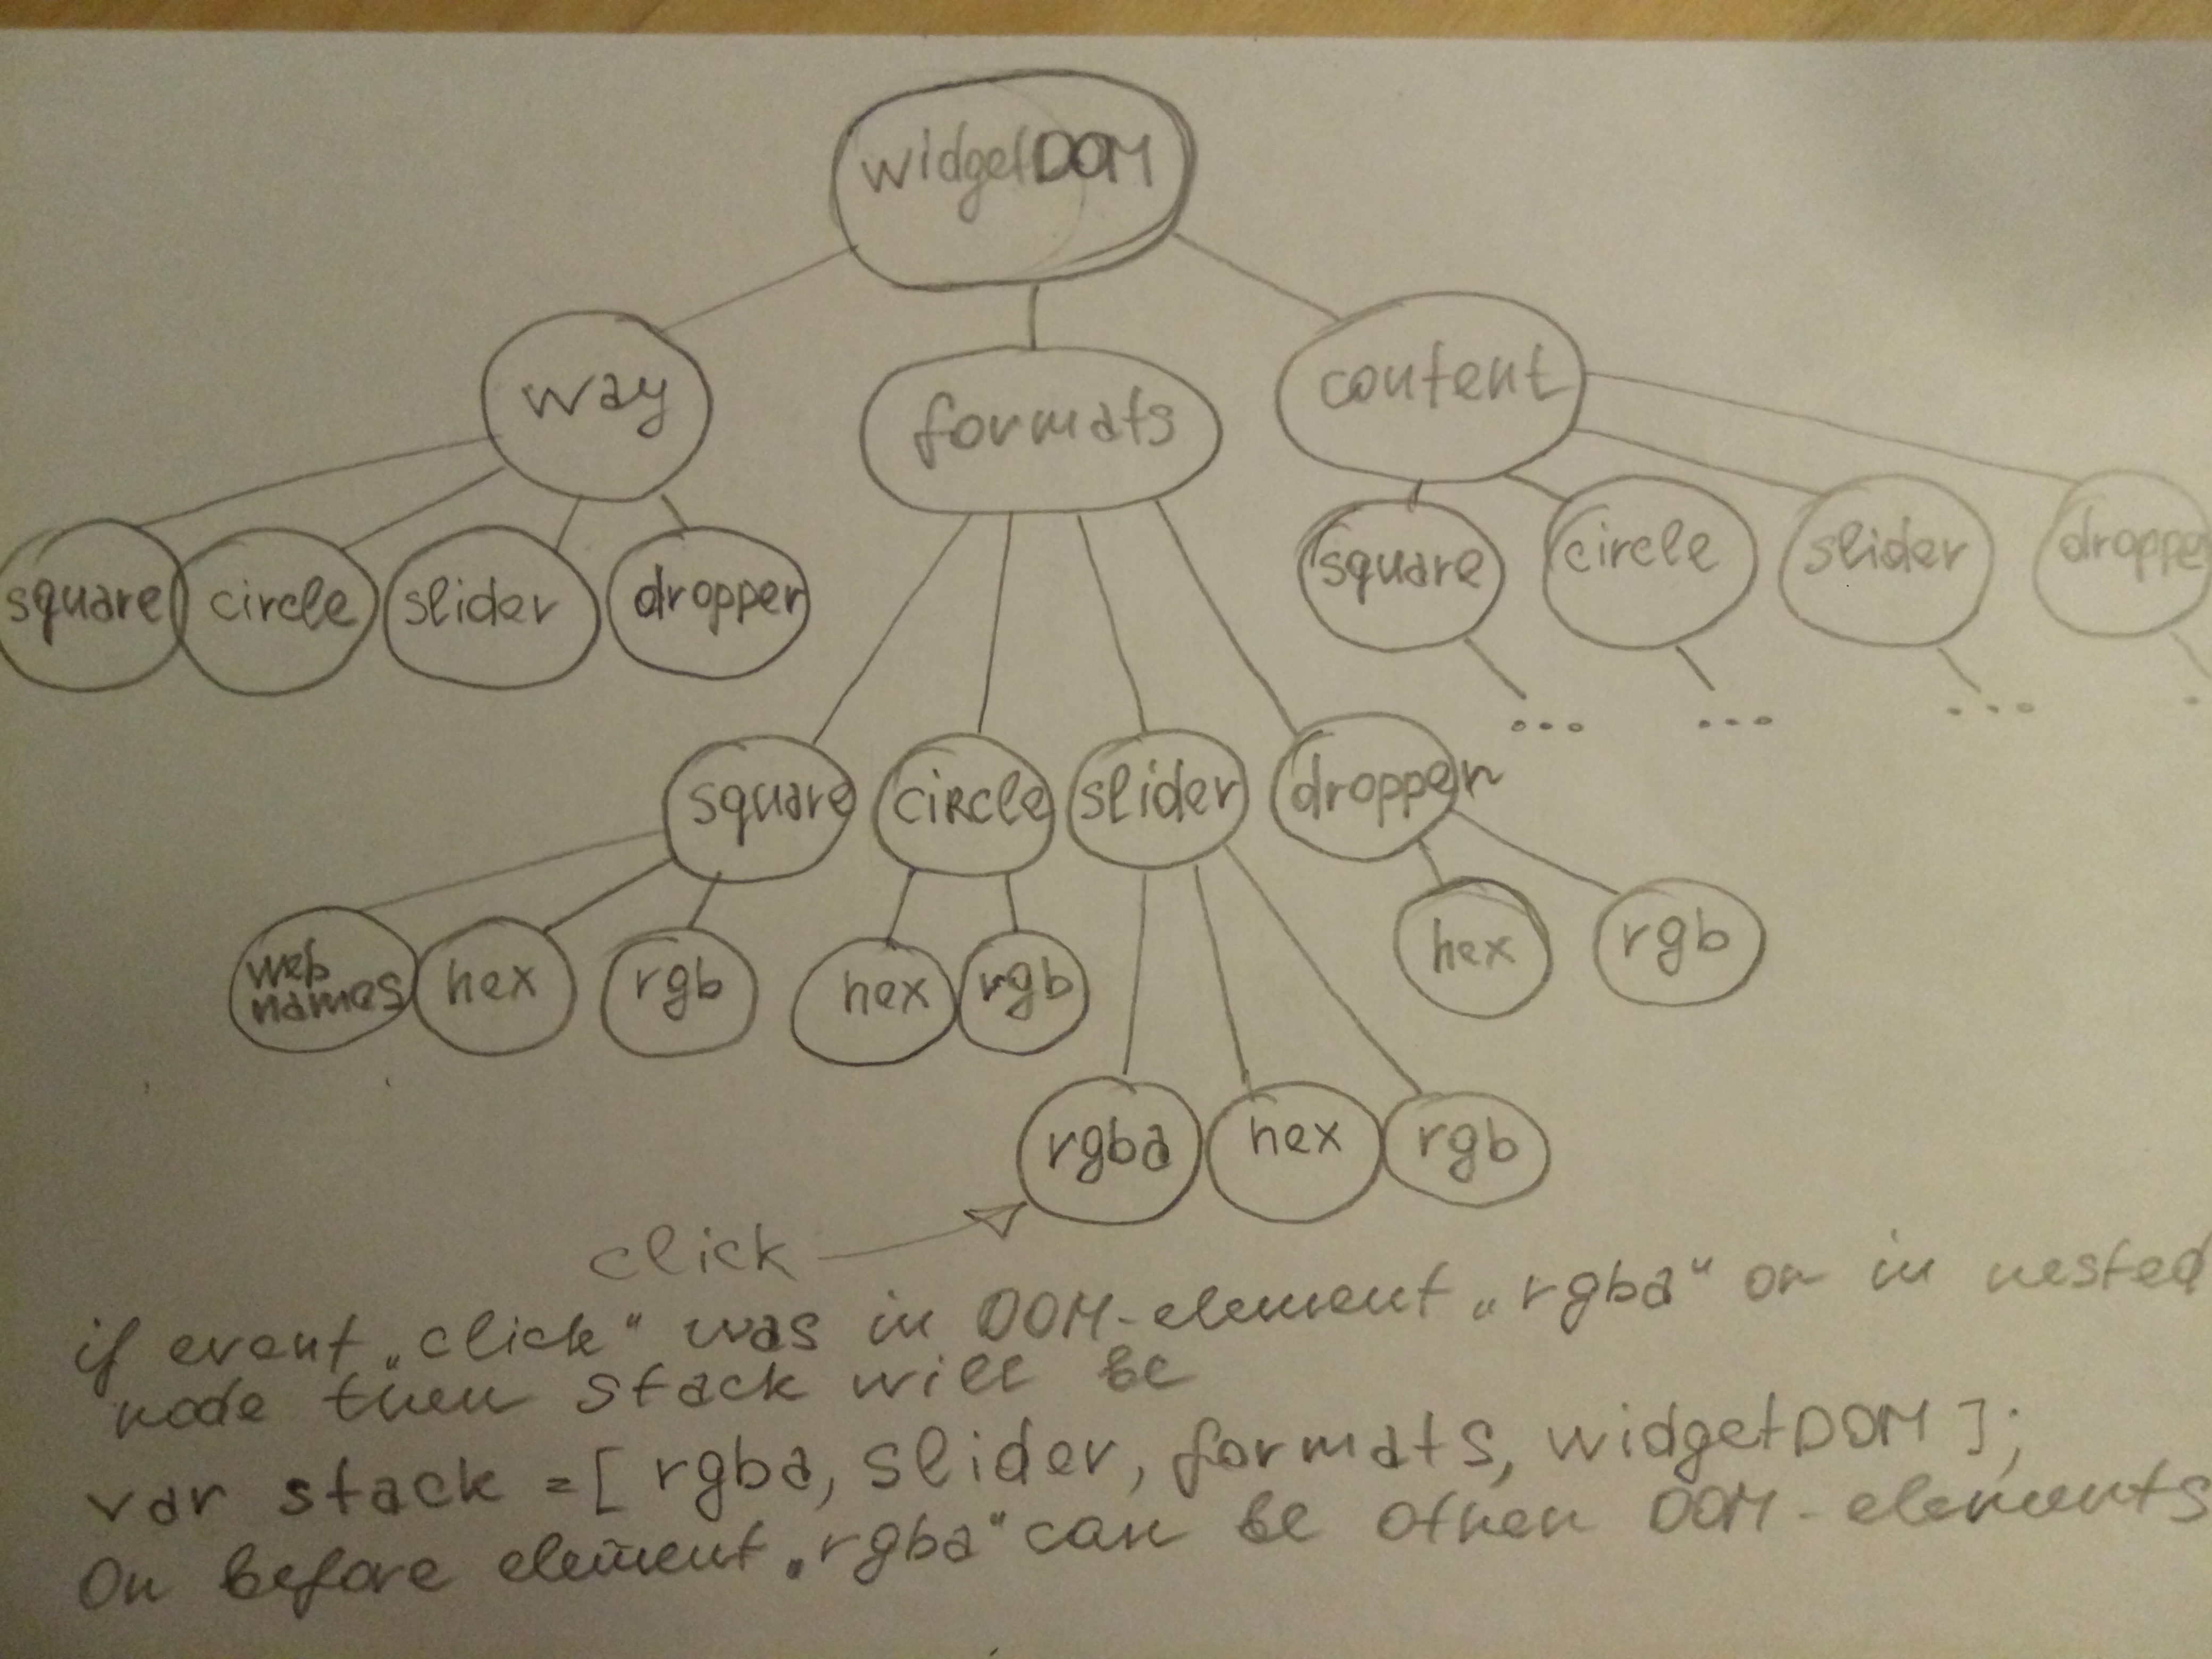 widgetDOM
way
formats
content
square circle slider dropper
square circle slider droppe
... ... ...
square circle slider dropper
web
names
hex rgb
hex rgb
hex rgb
rgba hex rgb
click
if event „click" was in DOM-element „rgba" or in nested
node then stack will be
var stack = [ rgba, slider, formats, widgetDOM ];
Or before element „rgba" can be other DOM-elements